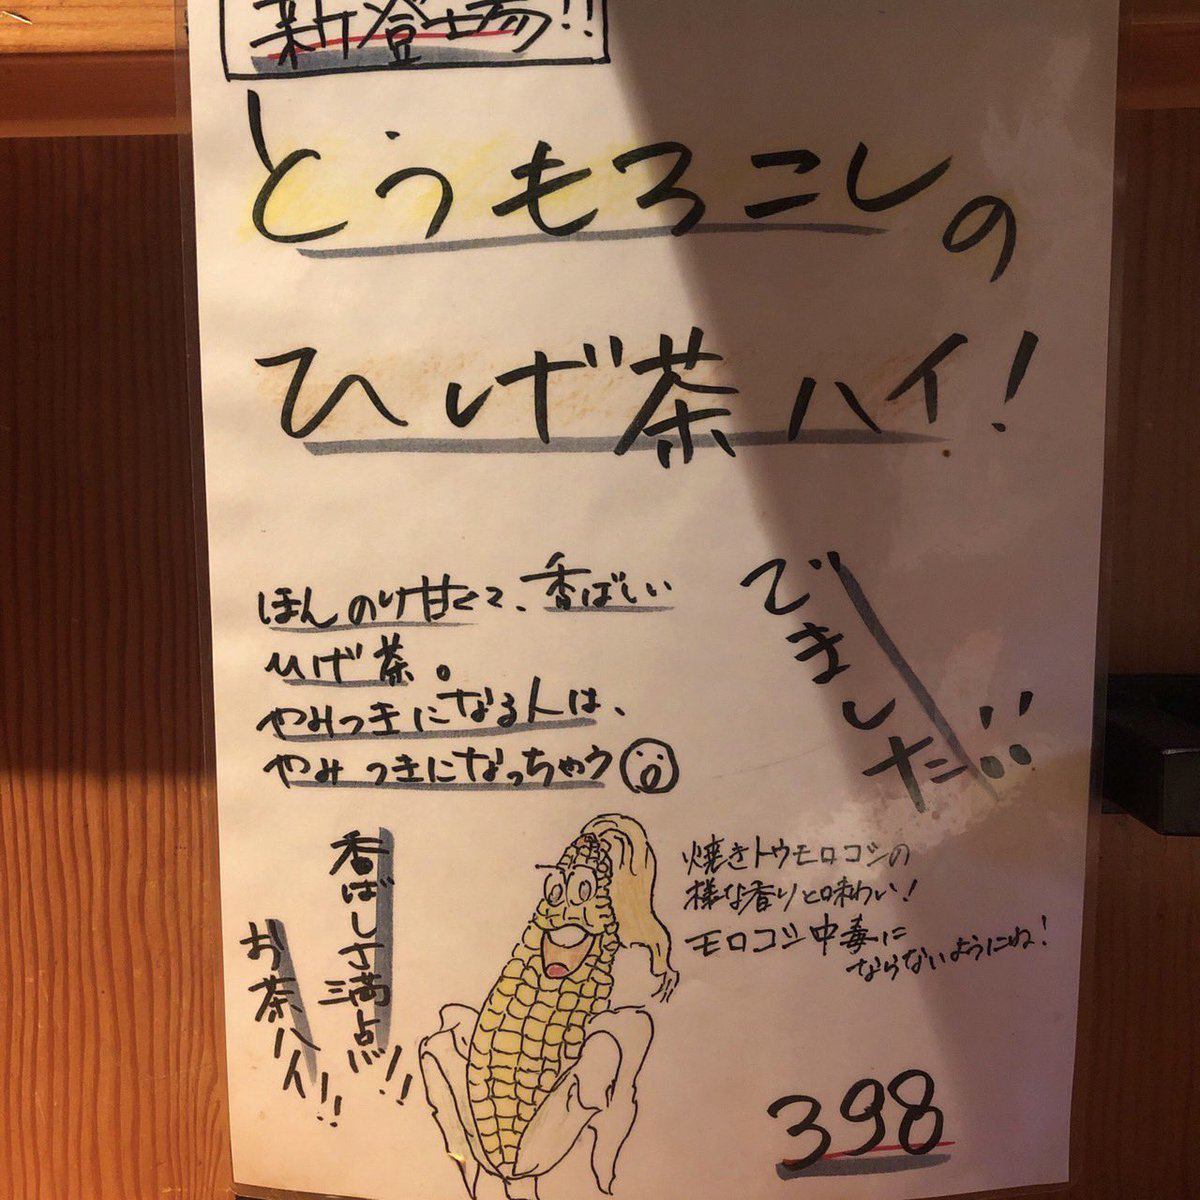 新登場!!
とうもろこしの
ひげ茶ハイ!
でました!!
ほんのり甘くて、香ばしい
ひげ茶。
やみつきになる人は、
やみつきになっちゃう
香ばしさ満点!!
お茶ハイ!!
焼きトウモロコシの
様な香りと味わい!
モロコシ中毒に
ならないようにね!
398